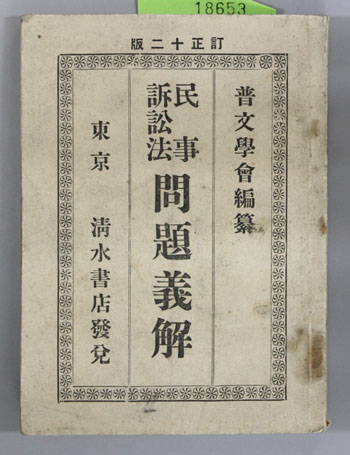 18653
訂正十二版
普文學會編纂
民事訴訟法問題義解
東京 清水書店發兌